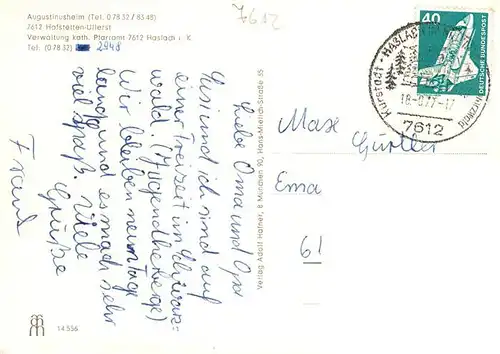 Augustinusheim (Tel. 0 78 32 / 83 48)
7612 Hofstetten-Ullerst
Verwaltung kath. Pfarramt 7612 Haslach i. K
Tel: (0 78 32) 2948
7612
Liebe Oma und Opa
Susi und ich sind auf
einer Freizeit im Schwarz-
wald. (Jugendherberge)
Wir bleiben neun Tage
lang und es macht sehr
viel Spaß. Viele
Grüße
Frank
Verlag Adolf Halner, 8 München 90, Hans-Mielich-Straße 35
14.556
40
DEUTSCHE BUNDESPOST
Kurstadt · HASLACH
-17
7612
Max
Gürtler
Ema
61